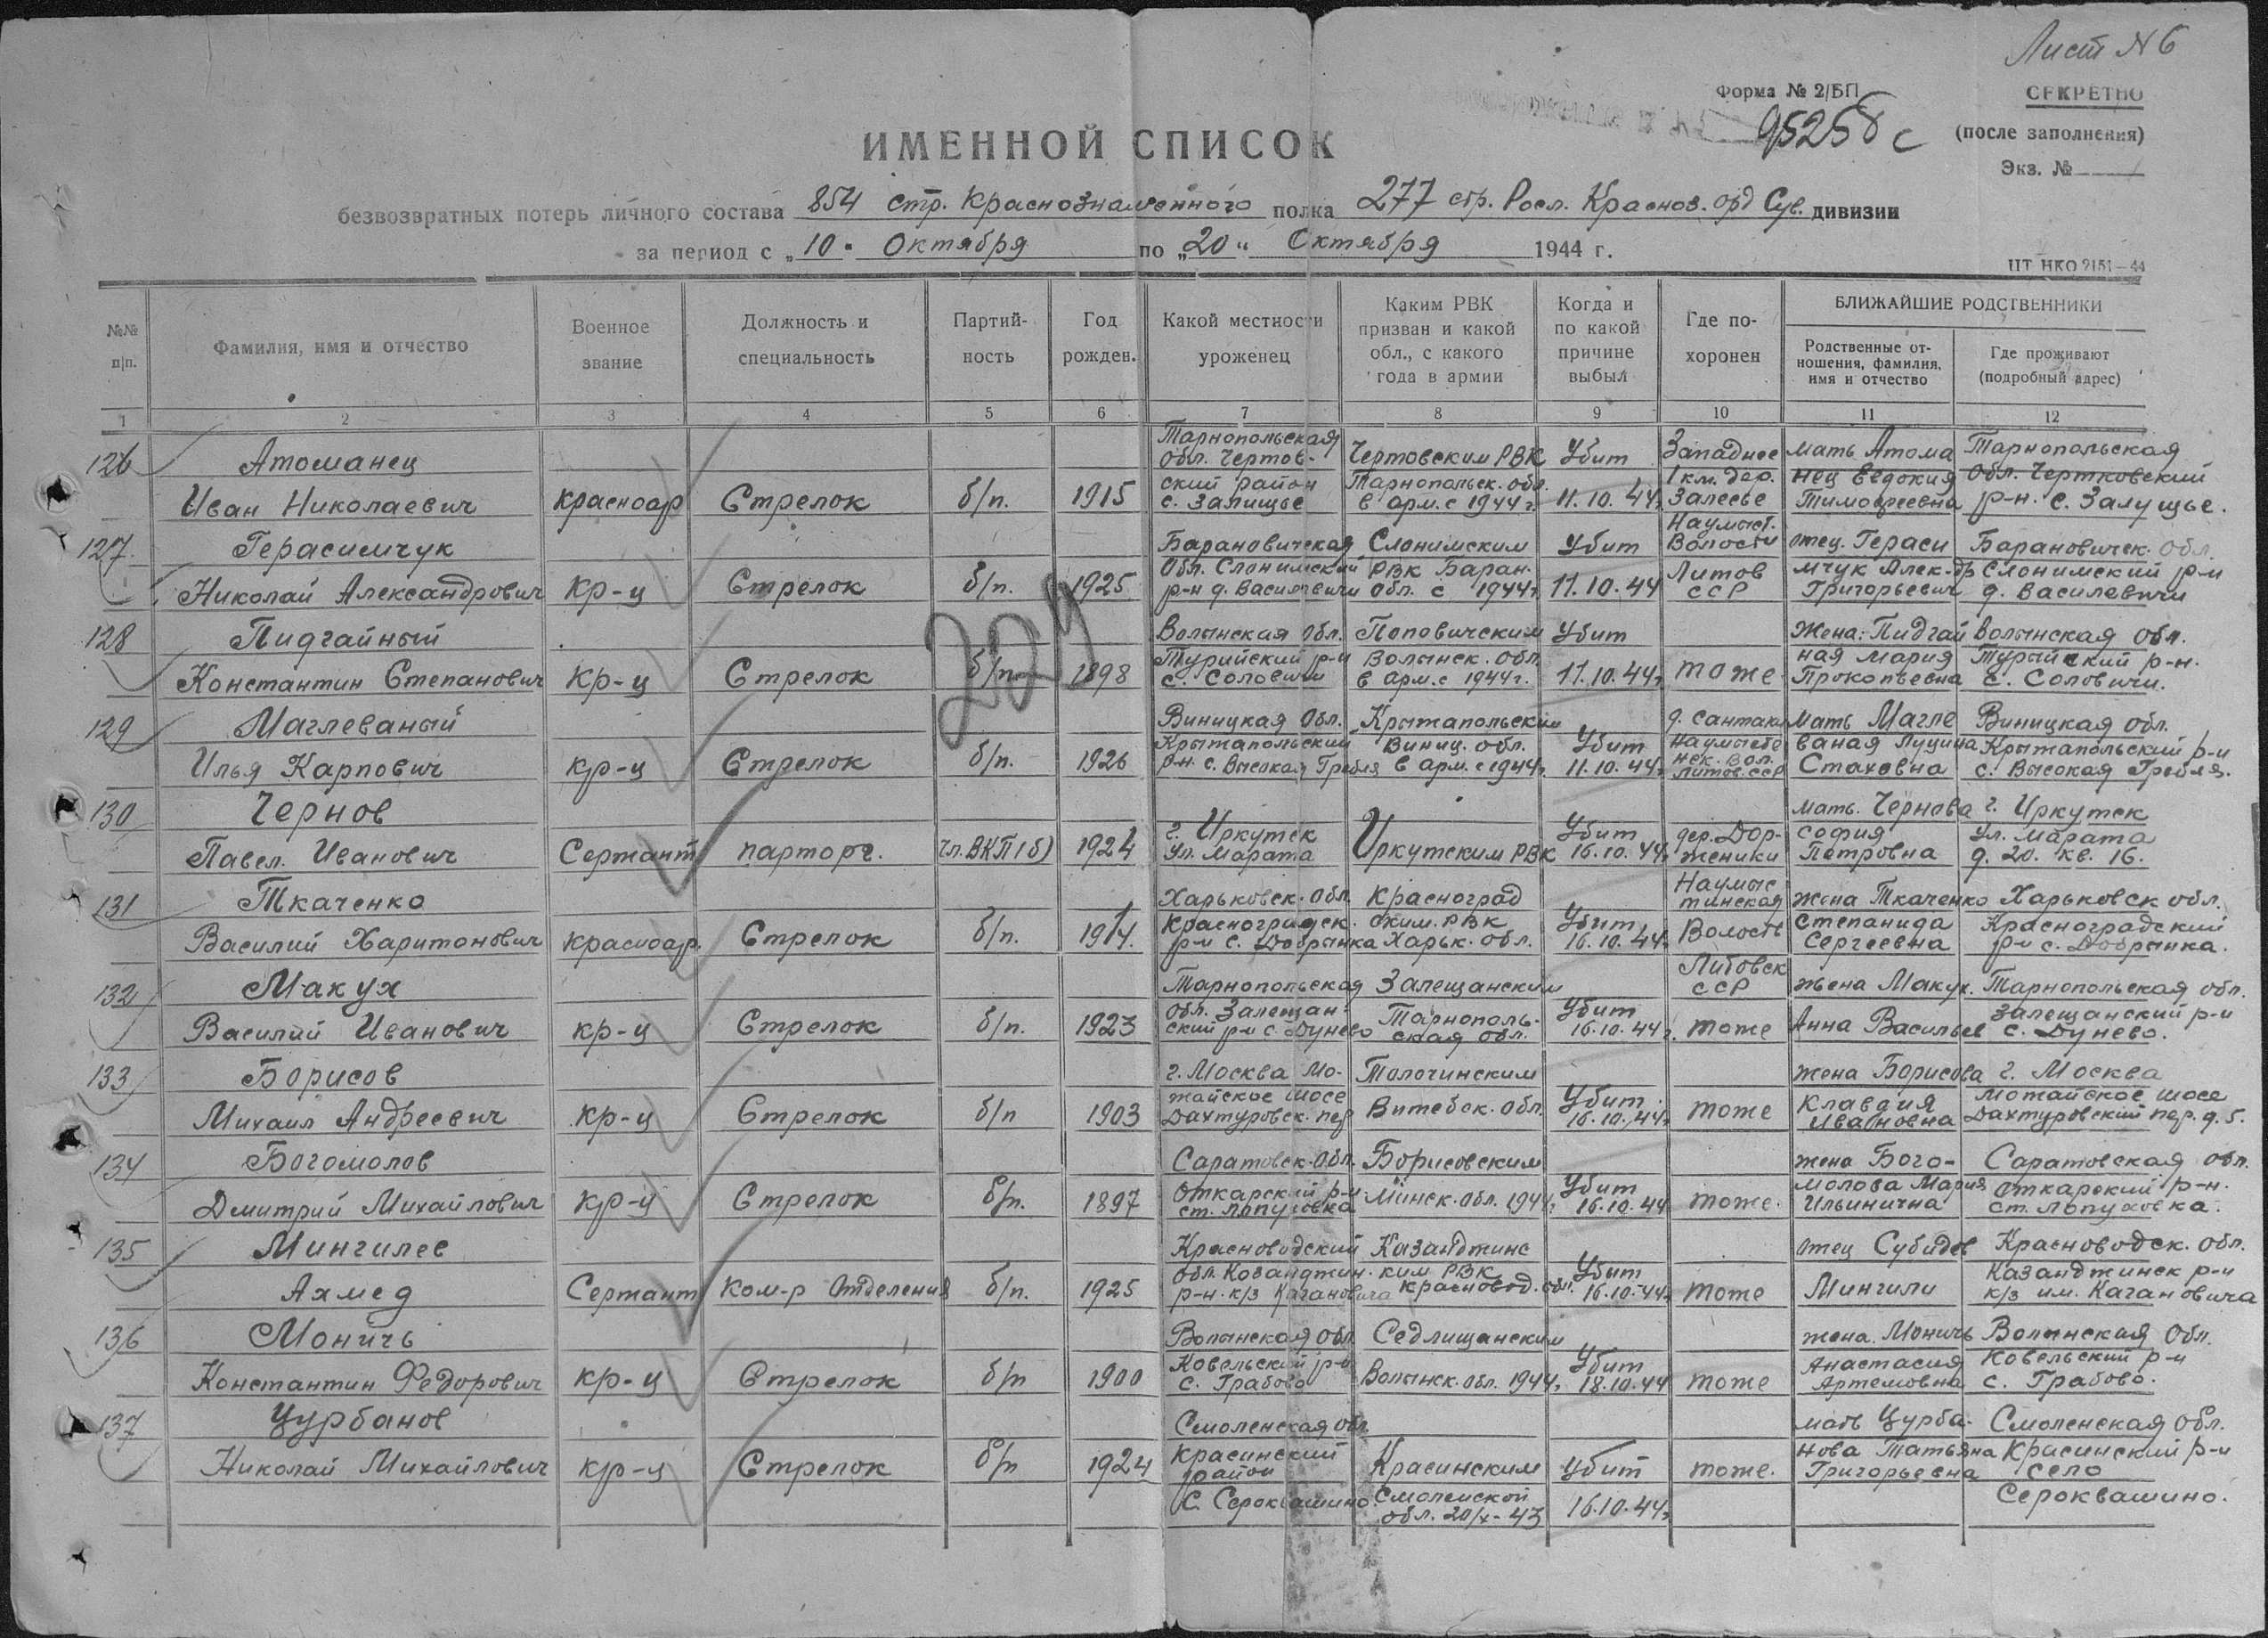 Лист № 6
Форма № 2/БП
СЕКРЕТНО
95258 с
(после заполнения)
Экз. №
ИМЕННОЙ СПИСОК
безвозвратных потерь личного состава 854 стр. Краснознаменного полка 277 стр. Росл. Краснов. орд Сув. дивизии
за период с „10" Октября по „20" Октября 1944 г.
ЦТ НКО 2151—44
№№ п/п.
Фамилия, имя и отчество
Военное звание
Должность и специальность
Партий-ность
Год рожден.
Какой местности уроженец
Каким РВК призван и какой обл., с какого года в армии
Когда и по какой причине выбыл
Где по-хоронен
БЛИЖАЙШИЕ РОДСТВЕННИКИ
Родственные от-ношения, фамилия, имя и отчество
Где проживают (подробный адрес)
1 2 3 4 5 6 7 8 9 10 11 12
126 Атоманец
Иван Николаевич
красноар
Стрелок
б/п.
1915
Тарнопольская
обл. Чертов-
ский район
с. Залищье
Чертовским РВК
Тарнопольск. обл.
в арм. с 1944 г.
Убит
11.10.44г.
Западнее
1 км. дер.
Залесье
Наумыст.
Волости
Литов
ССР
мать Атома
нец Евдокия
Тимофеевна
Тарнопольская
обл. Чертковский
р-н. с. Залущье.
127 Герасимчук
Николай Александрович
Кр-ц
Стрелок
б/п.
1925
Барановичская
Обл. Слонимский
р-н д. Василевичи
Слонимским
РВК Баран.
обл. с 1944г.
Убит
11.10.44
отец. Гераси
мчук Алек-др
Григорьевич
Барановичск. обл.
Слонимский р-н
д. Василевичи
128 Пидгайный
Константин Степанович
Кр-ц
Стрелок
б/п.
1898
224
Волынская обл.
Турийский р-н
с. Соловичи
Поповичским
Волынск. обл.
в арм. с 1944г.
Убит
11.10.44г.
тоже
Жена: Пидгай
ная Мария
Прокопьевна
Волынская обл.
Турийский р-н.
с. Соловичи.
129 Маглеваный
Илья Карпович
кр-ц
Стрелок
б/п.
1926
Виницкая обл.
Крыжапольский
р-н. с. Высокая Гребля
Крыжапольским
Виниц. обл.
в арм. с 1944г.
Убит
11.10.44г.
д. Сантаки
Наумысте
нск. вол.
Литов. ССР
мать Магле
ваная Луцина
Стаховна
Виницкая обл.
Крыжапольский р-н
с. Высокая Гребля.
130 Чернов
Павел. Иванович
Сержант
парторг.
чл. ВКП(б)
1924
г. Иркутск
ул. Марата
Иркутским РВК
Убит
16.10.44г.
дер. Дор-
женики
Наумыс
тинская
Волость
Литовск
ССР
мать. Чернова
София
Петровна
г. Иркутск
ул. Марата
д. 20. кв. 16.
131 Ткаченко
Василий Харитонович
красноар.
Стрелок
б/п.
1914.
Харьковск. обл.
Красноградск.
р-н с. Добрынка
Красноград
ским. РВК
Харьк. обл.
Убит
16.10.44г.
жена Ткаченко
Степанида
Сергеевна
Харьковск обл.
Красноградский
р-н с. Добрынка.
132 Макух
Василий Иванович
кр-ц
Стрелок
б/п.
1923
Тарнопольская
обл. Залещан-
ский р-н с. Дунево
Залещанским
Тарнополь-
ская обл.
Убит
16.10.44г.
тоже
жена Макух.
Анна Васильев
Тарнопольская обл.
Залещанский р-н
с. Дунево.
133 Борисов
Михаил Андреевич
кр-ц
Стрелок
б/п
1903
г. Москва Мо-
жайское шосе
Дахтуровск. пер
Толочинским
Витебск. обл.
Убит.
16.10.44г.
тоже
жена Борисова
Клавдия
Ивановна
г. Москва
Можайское шосе
Дахтуровский пер. д. 5.
134 Богомолов
Дмитрий Михайлович
кр-ц
Стрелок
б/п.
1897
Саратовск. обл.
Откарский р-н
ст. Лопуховка
Борисовским
Минск. обл. 1944г.
Убит
16.10.44
тоже.
жена Бого-
молова Мария
Ильинична
Саратовская обл.
Откарский р-н.
ст. Лопуховка.
135 Мингилев
Ахмед
Сержант
Ком-р Отделения
б/п.
1925
Красноводский
обл. Козанджин.
р-н. к/з Кагановича
Казанджинс
ким РВК
Красновод. обл.
Убит
16.10.44г.
тоже
отец Субидев
Мингили
Красноводск. обл.
Казанджинск р-н
к/з им. Кагановича
136 Моничь
Константин Федорович
кр-ц
Стрелок
б/п
1900
Волынская обл
Ковельский р-н
с. Грабово
Седлищанским
Волынск. обл. 1944г.
Убит
18.10.44
тоже
жена. Моничь
Анастасия
Артемовна
Волынская обл.
Ковельский р-н
с. Грабово.
137 Цурбанов
Николай Михайлович
кр-ц
Стрелок
б/п
1924
Смоленская обл.
Красинский
район
с. Сероквашино
Красинским
Смоленской
обл. 20/х-43
Убит
16.10.44г.
тоже.
мать Цурба-
нова Татьяна
Григорьевна
Смоленская обл.
Красинский р-н
село
Сероквашино.